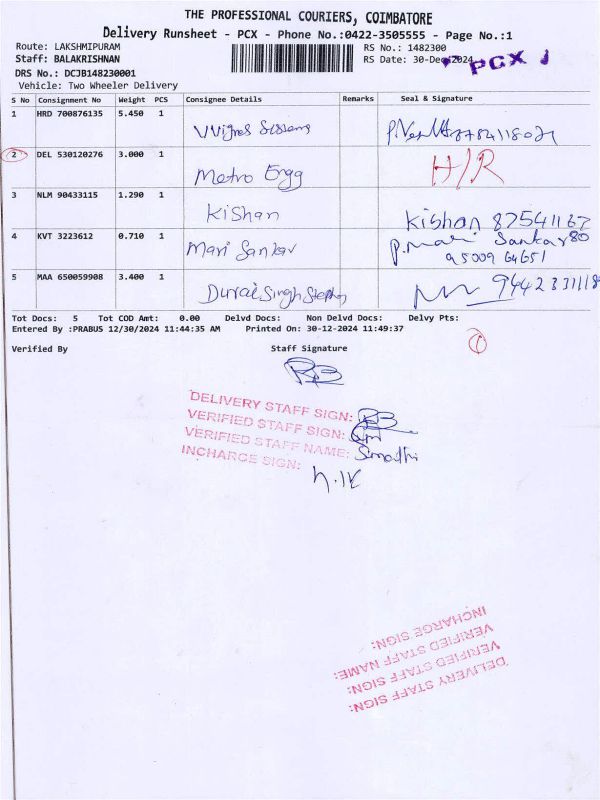 THE PROFESSIONAL COURIERS, COIMBATORE
Delivery Runsheet - PCX - Phone No.:0422-3505555 - Page No.:1
Route: LAKSHMIPURAM
RS No.: 1482300
Staff: BALAKRISHNAN
RS Date: 30-Dec2024
PCX
DRS No.: DCJB148230001
Vehicle: Two Wheeler Delivery
S No Consignment No Weight PCS Consignee Details Remarks Seal & Signature
1 HRD 700876135 5.450 1
2 DEL 530120276 3.000 1 Metro Engg H/R
3 NLM 90433115 1.290 1 Kishan Kishan 87541167
4 KVT 3223612 0.710 1 Mari Sankar P.Mari Sankar 80
95009 64651
5 MAA 650059908 3.400 1 Durai Singh Stephen
Tot Docs: 5 Tot COD Amt: 0.00 Delvd Docs: Non Delvd Docs: Delvy Pts:
Entered By :PRABUS 12/30/2024 11:44:35 AM Printed On: 30-12-2024 11:49:37
Verified By Staff Signature
DELIVERY STAFF SIGN:
VERIFIED STAFF SIGN:
VERIFIED STAFF NAME: Sumathi
INCHARGE SIGN:
DELIVERY STAFF SIGN:
VERIFIED STAFF SIGN:
VERIFIED STAFF NAME:
INCHARGE SIGN: